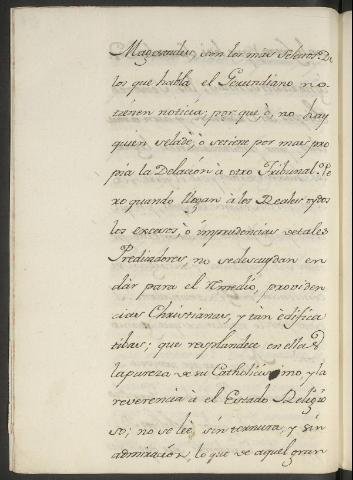 Magestades, con los mas Señores. De
los que habla el Gerundiano no
tienen noticia; por que, ò, no hay
quien se la dè, ò se tiene por mas pro
pia la Delacion à otro Tribunal. Pe
ro quando llegan à los Reales oydos
los excesos, ò imprudencias de tales
Predicadores, no se descuydan en
dàr para el Remedio, providen
cias Christianas, y tàn edifica
tibas; que resplandece en ellas
la pureza de su Catholicismo, y la
reverencia à el Estado Religio
so; no se leè, sin ternura, y sin
admiracion, lo que de aquel gran